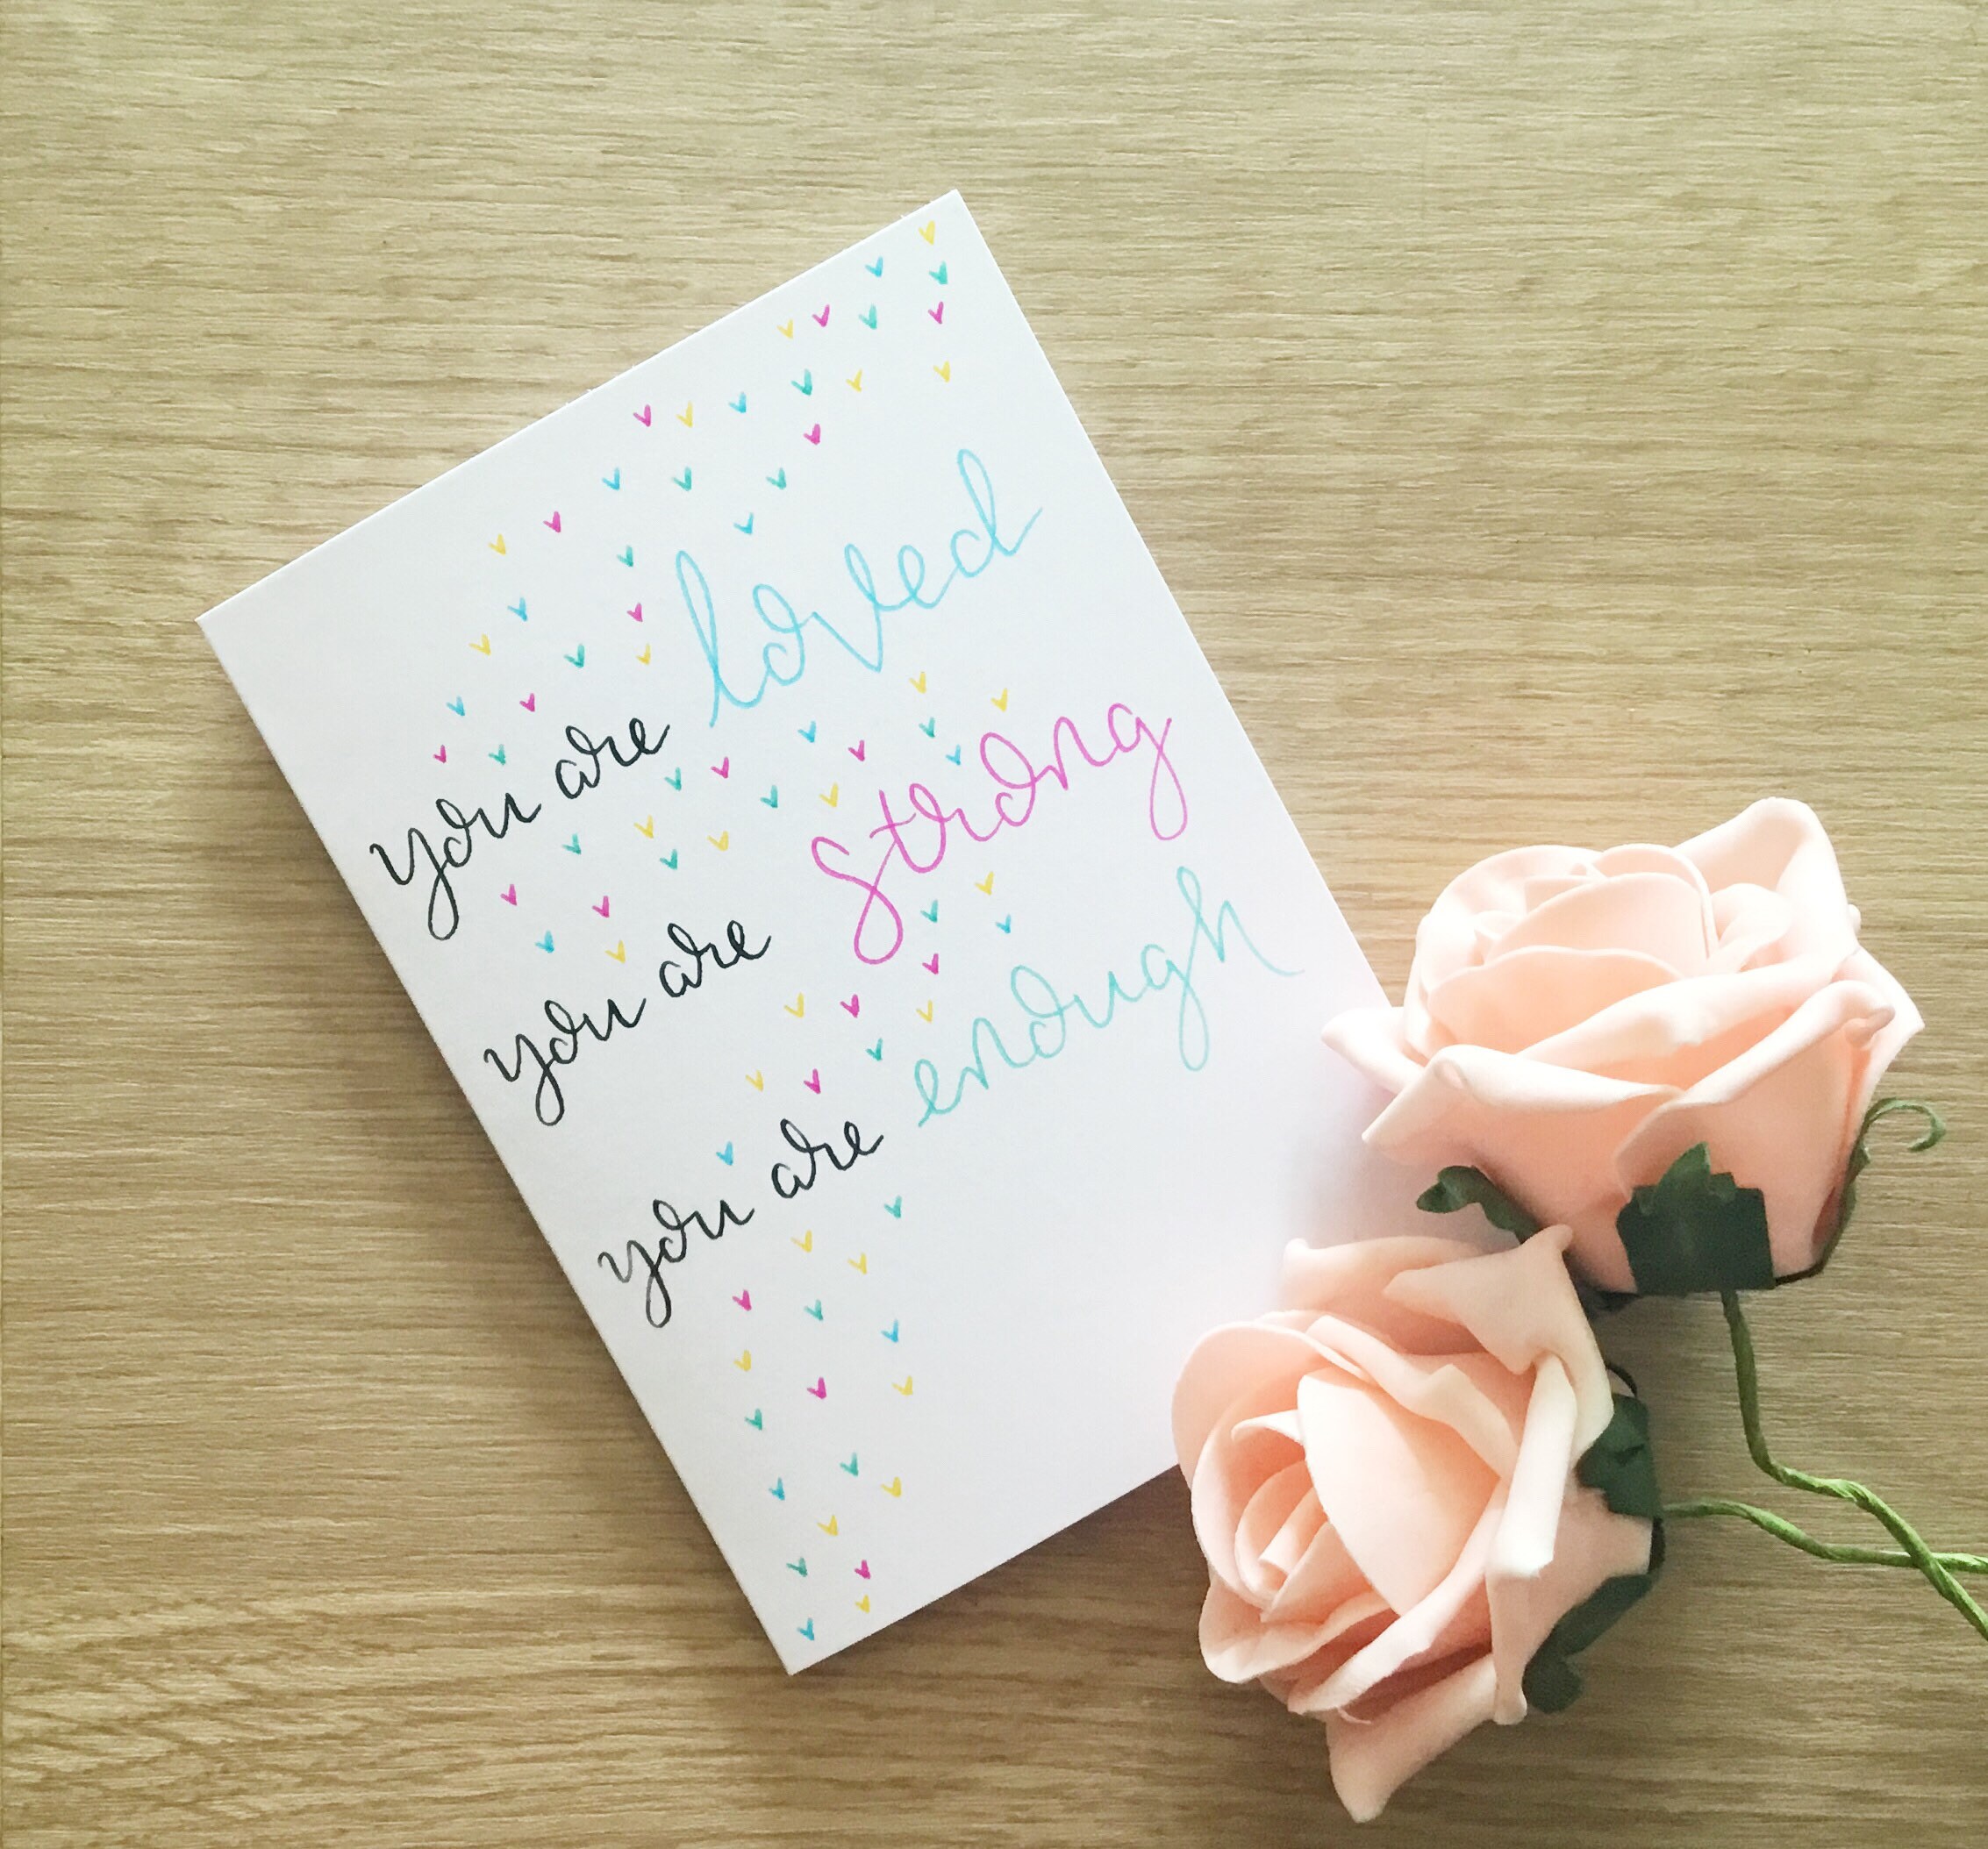 you are loved
you are strong
you are enough